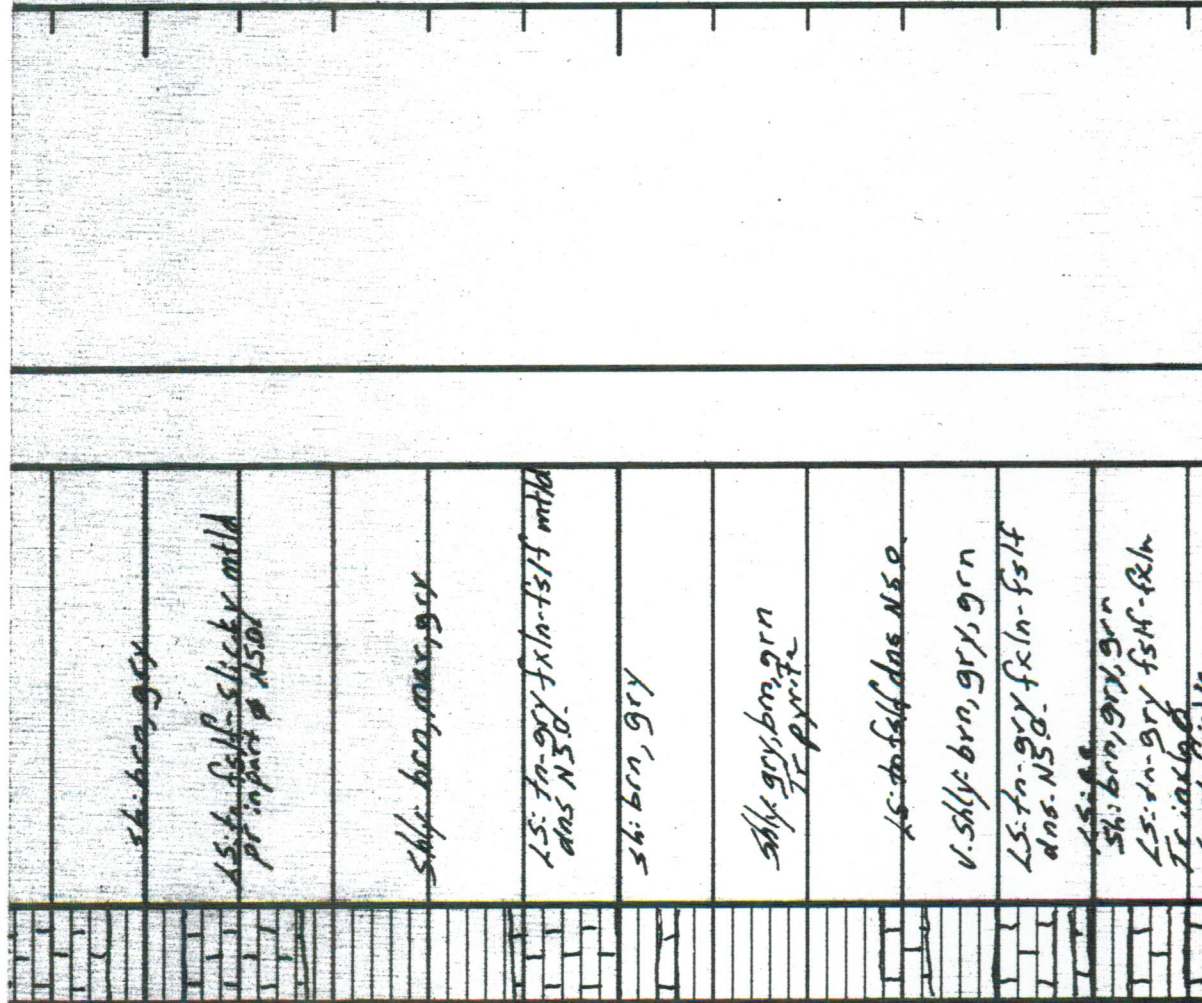 sh: brn, gry
LS: tn fslf - slicky mtld
pr inpart ø NSO.
Shly: brn, mar, gry
LS: tn-gry fxln-fslf mtld
dns NSO.
sh: brn, gry
Shly: gry, brn, grn
Tr pyrite
LS: tn fslf dns NSO.
V. Shly: brn, gry, grn
LS: tn-gry fxln-fslf
dns. NSO.
LS:
Sh: brn, gry, grn
LS: tn-gry fslf-fxln
Tr